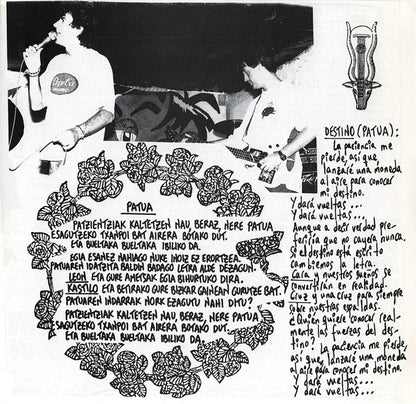 PATUA
PATZIENTZIAK KALTETZEN NAU, BERAZ, NERE PATUA
ESAGUTZEKO TXANPOI BAT AIRERA BOTAKO DUT.
ETA BUELTAKA BUELTAKA IBILIKO DA.
EGIA ESANEZ NAHIAGO NUKE INOIZ EZ ERORTZEA.
PATUAREN IDATZITA BALDIN BADAGO LETRA ALDE DEZAGUN.
LEON ETA GURE AMETSAK EGIA BIHURTUKO DIRA.
KASTILO ETA BETIRAKO GURE BIZKAR GAINEAN GURUTZE BAT.
PATUAREN INDARRAK NORK EZAGUTU NAHI DITU?
PATZIENTZIAK KALTETZEN NAU, BERAZ, NERE PATUA
ESAGUTZEKO TXANPOI BAT AIRERA BOTAKO DUT.
ETA BUELTAKA BUELTAKA IBILIKO DA.
DESTINO (PATUA):
La paciencia me
pierde, así que
lanzaré una moneda
al aire para conocer
mi destino.
Y dará vueltas...
Y dará vueltas...
Aunque a decir verdad pre-
feriría que no cayera nunca.
Si el destino está escrito
cambiemos la letra.
Cara y nuestros sueños se
convertirán en realidad.
Cruz y una cruz para siempre
sobre nuestras espaldas.
¿Quién quiere conocer real-
mente las fuerzas del des-
tino? La paciencia me pierde,
así que, lanzaré una moneda
al aire para conocer mi destino.
Y dará vueltas...
Y dará vueltas...